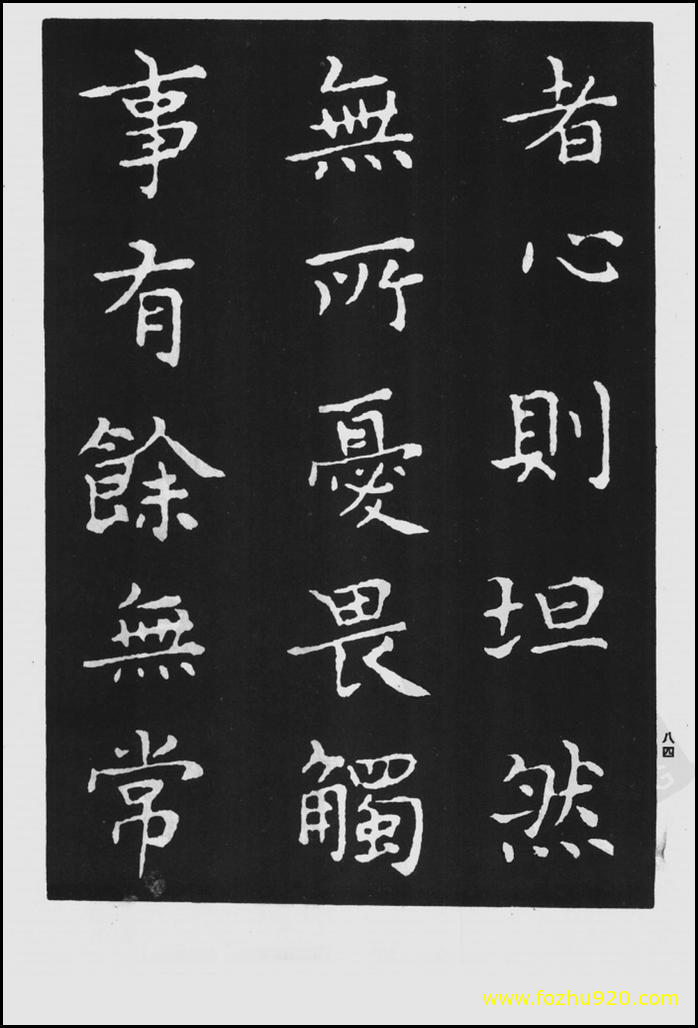 者心則坦然
無所憂畏觸
事有餘無常
八四
www.fozhu920.com